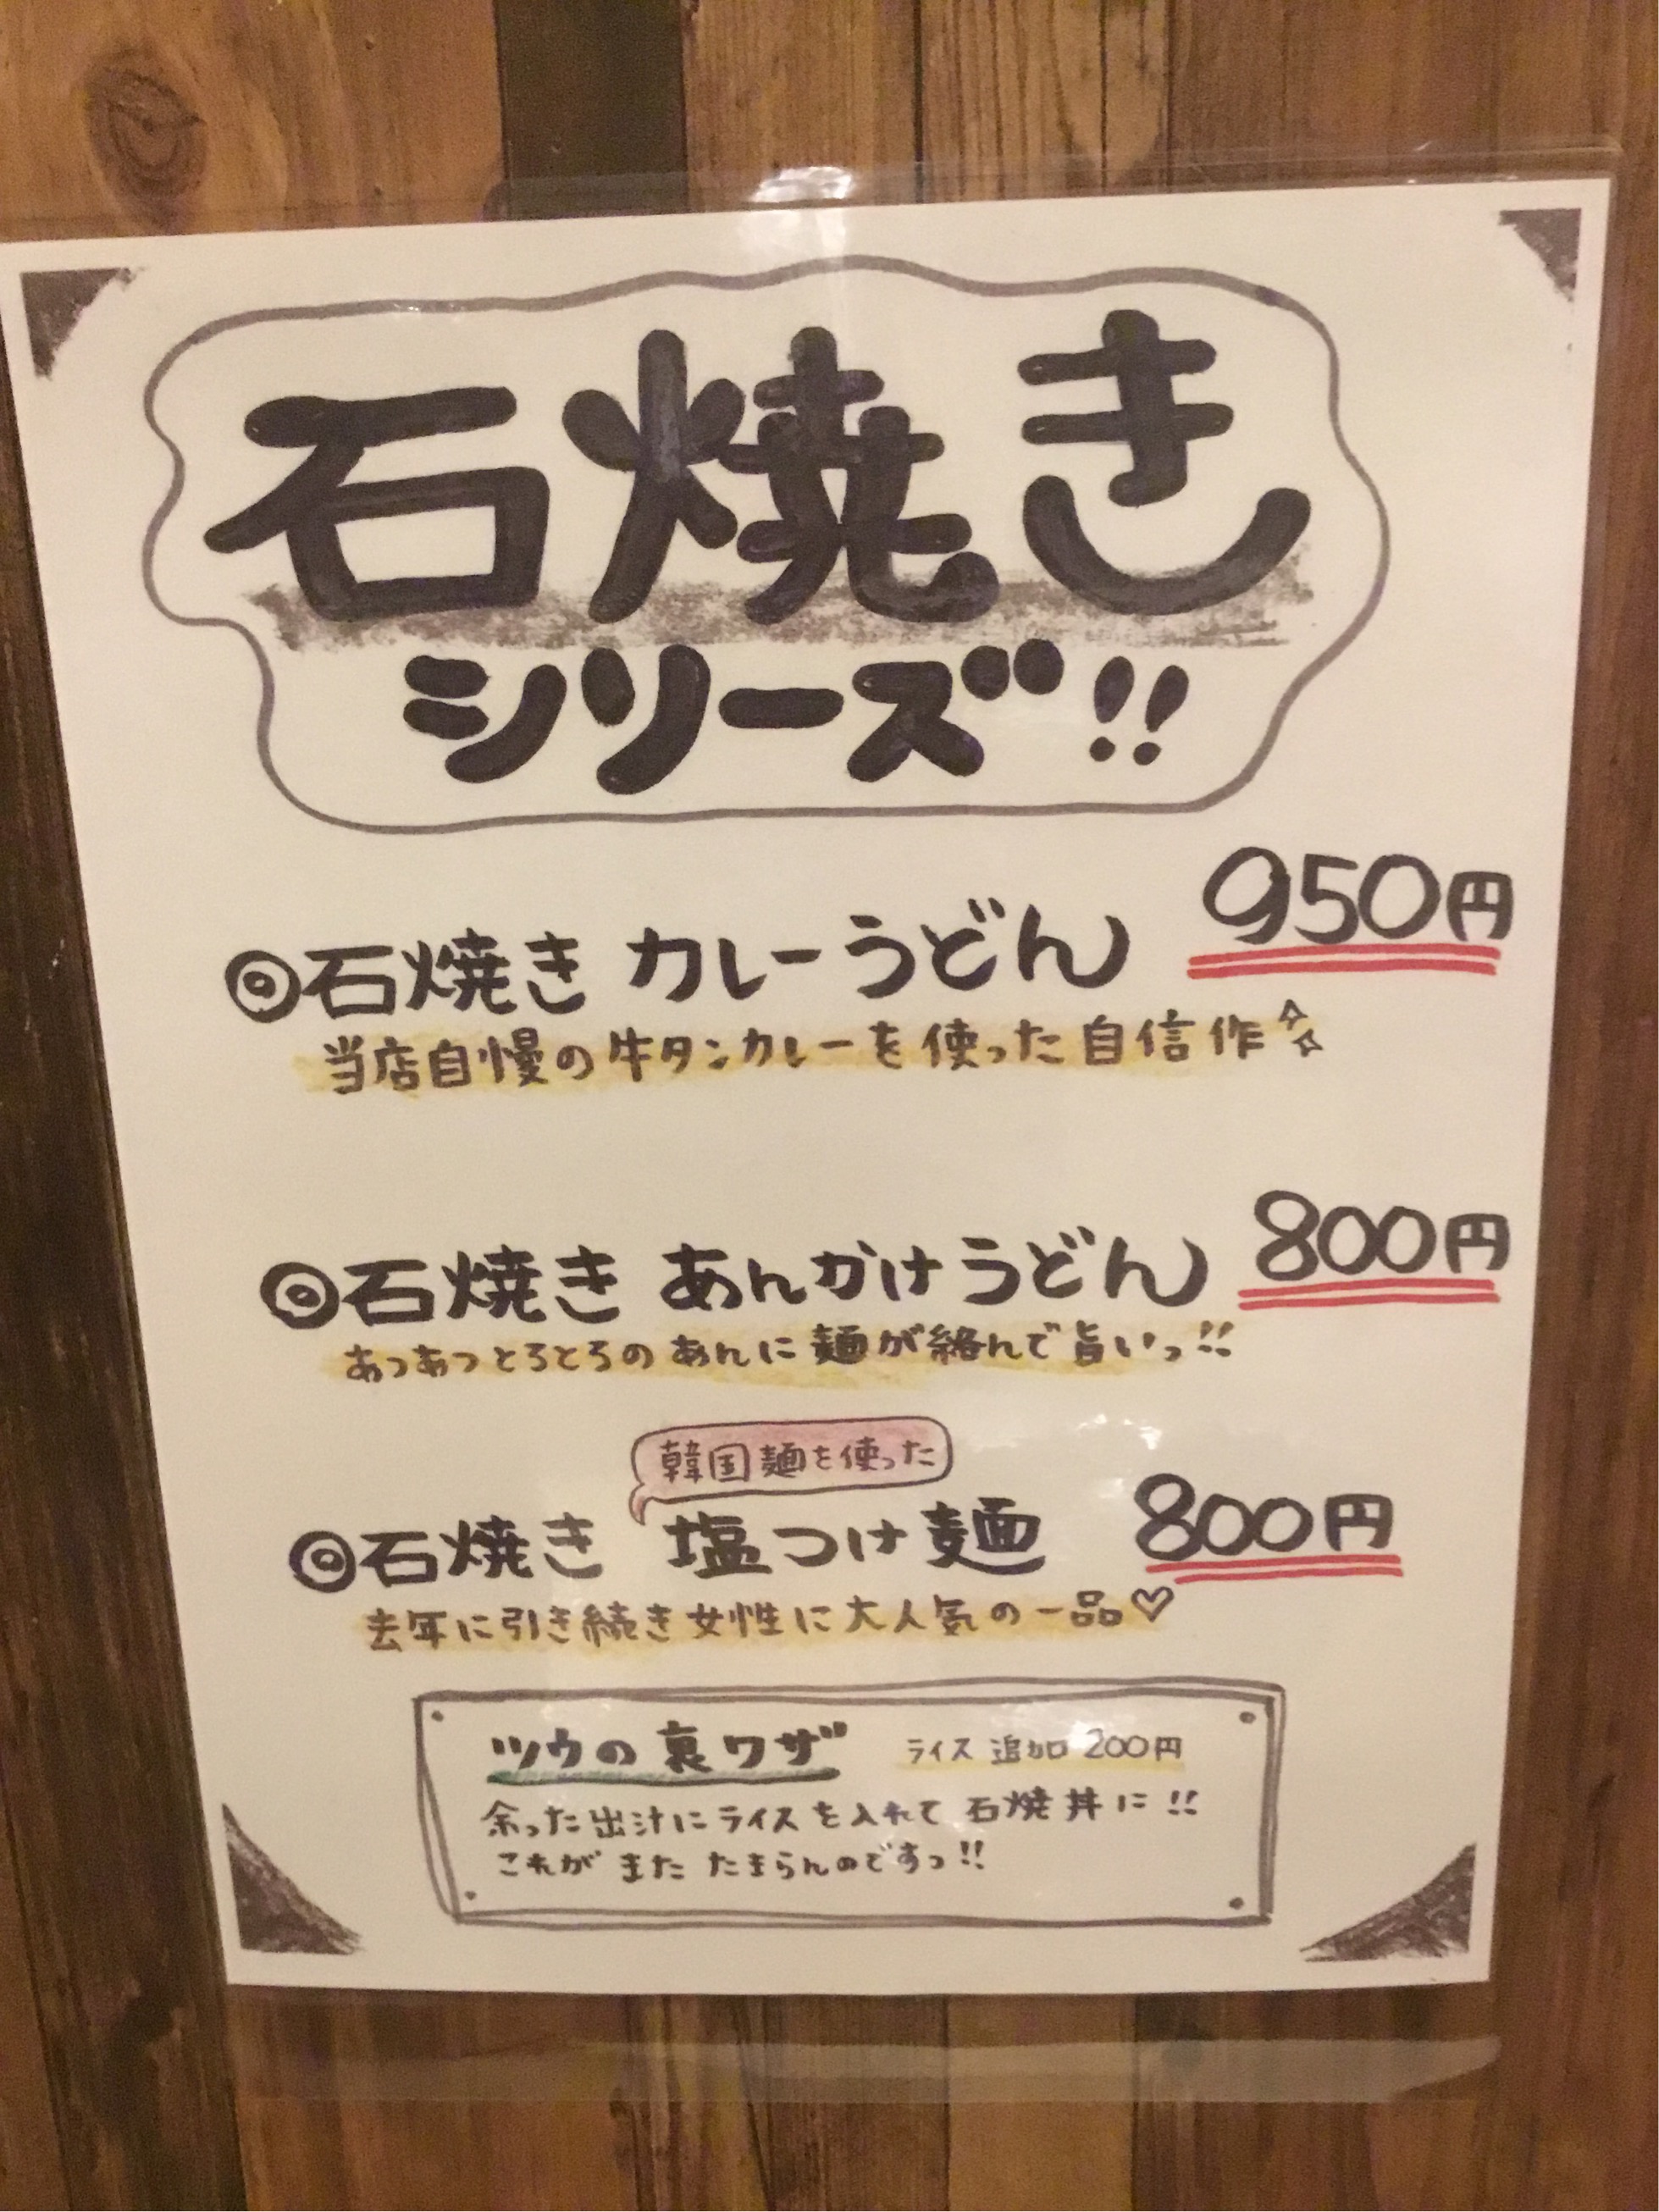 石焼き
シリーズ!!
◎石焼き カレーうどん 950円
当店自慢の牛タンカレーを使った自信作
◎石焼き あんかけうどん 800円
あつあつとろとろのあんに麺が絡んで旨いっ!!
韓国麺を使った
◎石焼き 塩つけ麺 800円
去年に引き続き女性に大人気の一品♡
ツウの裏ワザ ライス追加 200円
余った出汁にライスを入れて石焼丼に!!
これがまたたまらんのですっ!!